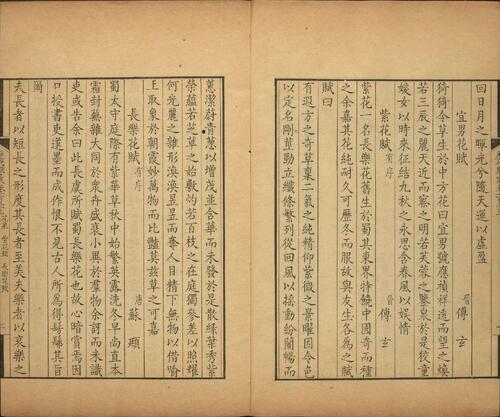 回日月之暉光兮隨天運以虛盈
宜男花賦
晉 傅玄
猗猗令草生於中方花曰宜男號應禎祥遠而望之煥
若三辰之麗天近而察之明若芙蓉之鑒泉於是狡童
媛女以時來征結九秋之永思含春風以娛情
紫花賦有序
晉 傅玄
紫花一名長樂花舊生於蜀其東界特饒中國奇而種
之余嘉其花純耐久可歷冬而服故與友生各為之賦
賦曰
有遐方之奇草稟二氣之純精仰紫微之景曜因令色
以定名剛莖勁立纖條繁列從回風以搖動紛蘭暢而
蕙潔蔚青蔥以增茂並含華而未發於是散綠葉秀紫
榮蘊若芝草之始敷灼若百枝之在庭獨參差以照耀
何光麗之雜形渙渙昱昱而奪人目精下無物以借喻
上取象於朝霞妙萬物而比豔莫茲草之可嘉
長樂花賦有序
唐 蘇頲
蜀太守庭際有紫華草秋中始繁英露洗冬早尚直本
霜封蕪雜大同於衆卉盛衰小異於羣物余訝而未識
吏或告余曰此長虞所賦蜀長樂花也故心暗賞焉因
口授書吏遽墨而成作恨不見古人所爲得髣髴其旨
爾
夫長者以短長之形度其長者至美夫樂者以哀樂之